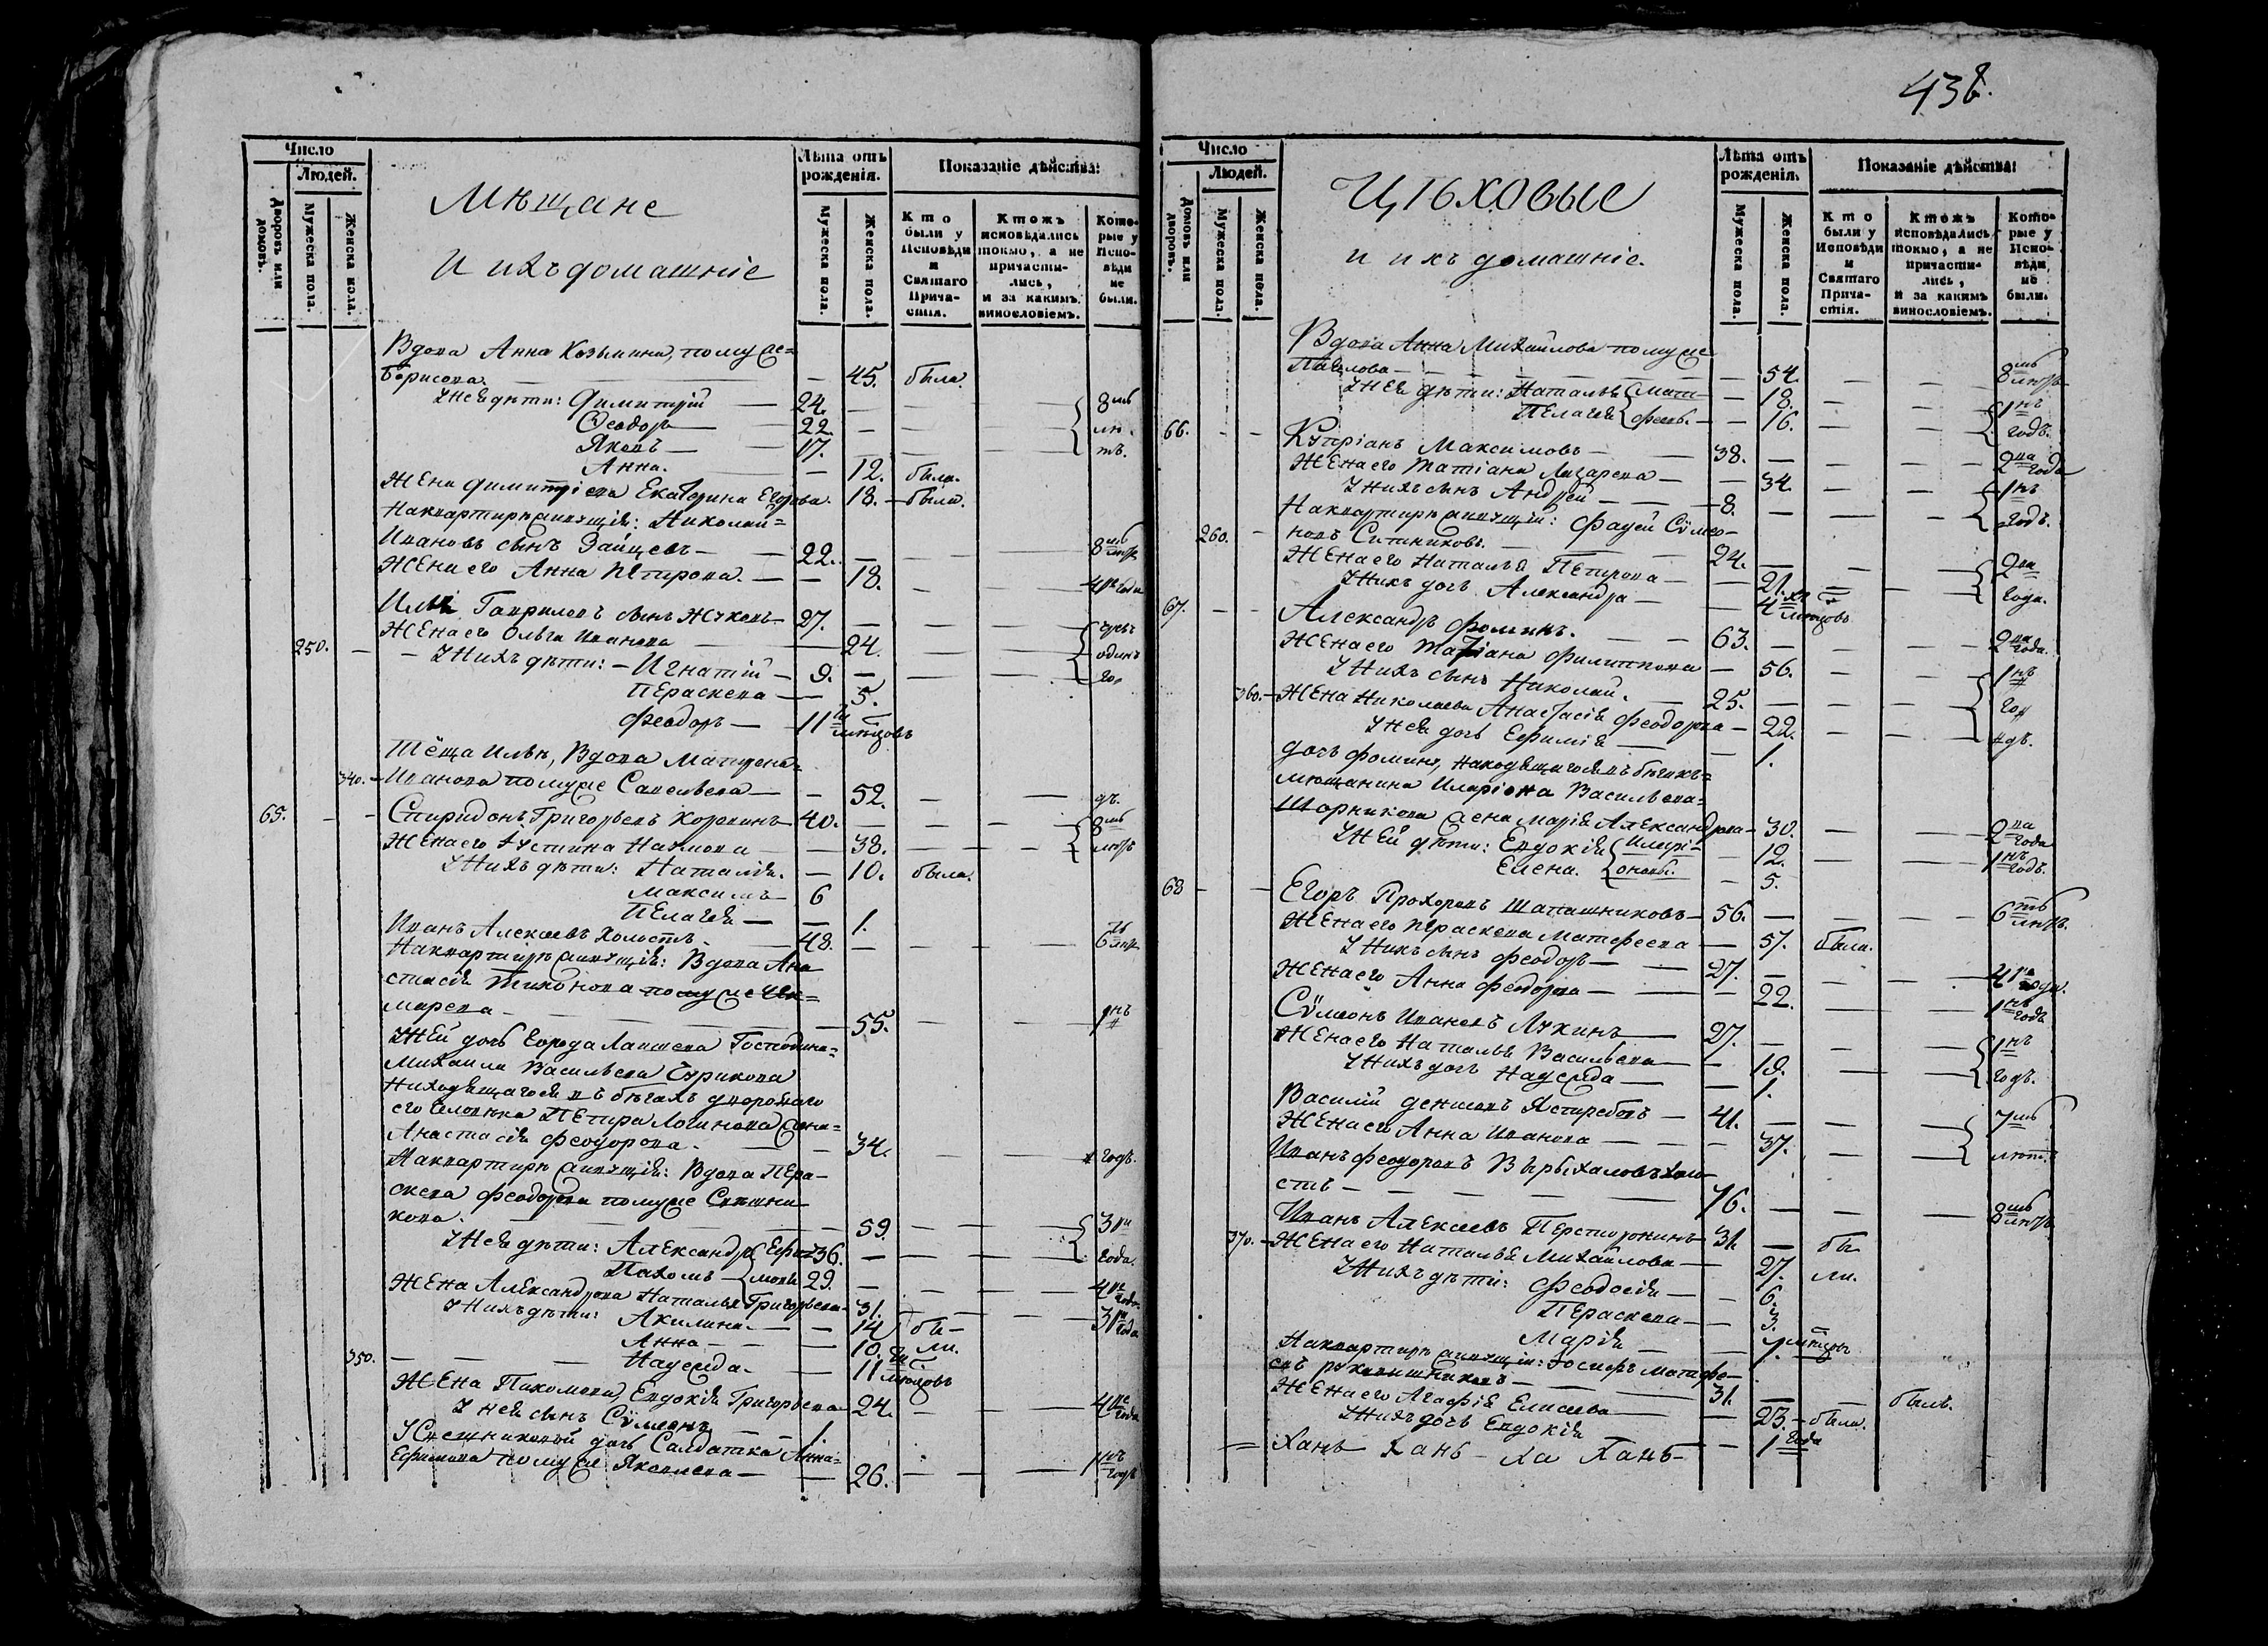 438.
Число
Людей.
Дворовъ или домовъ.
Мужеска пола.
Женска пола.
Мѣщане
и ихъ домашніе
Лѣта отъ рожденія.
Мужеска пола.
Женска пола.
Показаніе дѣйства:
Кто были у Исповѣди и Святаго Причастія.
Ктожъ исповѣдались токмо, а не причастились, и за какимъ винословіемъ.
Которые у Исповѣди не были.
Вдова Анна Козьмина, по муже-
Борисова. 45. была.
У нея дѣти: Димитрій 24. 8мь
Ѳеодоръ 22. лѣ
Яковъ 17. тъ.
Анна. 12. была.
Жена Димитріева Екатерина Егорова. 18. была.
На квартирѣ живущія: Николай
Ивановъ сынъ Зайцевъ 22. 8мь лѣтъ
Жена его Анна Петрова. 18. 4ре года
Илья Гавриловъ сынъ Жуковъ 27.
Жена его Ольга Иванова 24. одинъ
250. У нихъ дѣти: Игнатій 9. го
Параскева 5.
Феодоръ 11ти мѣсяцовъ
Тёща Ильи, Вдова Матрена
340. Иванова по муже Савельева 52. дъ.
65. Спиридонъ Григорьевъ 40. 8мь
Жена его Устина Наумова 38. лѣтъ
У нихъ дѣти: Наталія. 10. была.
Максимъ 6
Пелагея 1.
Иванъ Алексѣевъ холостъ. 48. 6ть лѣтъ
На квартирѣ живущія: Вдова Ана
стасія Тихонова по муже
марева 55. 1нъ
У ней дочь Господина
Михаила Васильева
находящагося въ бѣгахъ двороваго
его человѣка Петра Логинова жена
Анастасія Феодорова. 34. годъ.
На квартирѣ живущія: Вдова Пара-
скева Феодорова по муже
кова. 59. 3ри
У нея дѣти: Александръ Ефи 36. года.
Пахомъ мовы 29.
Жена Александрова Наталья Григорьева 31. 4ре года
У нихъ дѣти: Акилина. 14 бы- 3ри года
Анна 10. ли.
350. Надежда. 11ти мѣсяцовъ
Жена Пахомова, Евдокія Григорьева 24. 4ре года
У нея сынъ Сѵмеонъ 1.
дочь Салдатка Анна
Ефимова по муже Яковлева 26. 1нъ годъ
Число
Людей.
Домовъ или дворовъ.
Мужеска пола.
Женска пола.
Цѣховые
и ихъ домашніе.
Лѣта отъ рожденія.
Мужеска пола.
Женска пола.
Показаніе дѣйства:
Кто были у Исповѣди и Святаго Причастія.
Ктожъ исповѣдались токмо, а не причастились, и за какимъ винословіемъ.
Которые у Исповѣди не были.
Вдова Анна Михайлова по муже
Павлова 54. 8мь лѣтъ
У нея дѣти: Наталья Мат- 18. 1нъ
Пелагея фѣевы. 16. годъ.
66. Купріанъ Максимовъ 38. 2ва года
Жена его Татіана Лазарева 34. 1нъ
У нихъ сынъ Андрей 8. годъ.
На квартирѣ живущій: Фадей Сѵмео-
260. новъ Ситниковъ. 24. 2ва
Жена его Наталья Петрова 21. года.
У нихъ дочь Александра 4хъ мѣсяцовъ
67. Александръ Фоминъ. 63. 2ва года.
Жена его Татіана Филиппова 56. 1нъ
У нихъ сынъ Николай. 25. го
360. Жена Николаева Анастасія Феодорова 22. дъ.
У нея дочь Ефимія 1.
Дочь Фомина, находящагося въ бѣгахъ
мѣщанина Иларіона Васильева
Шорникова жена Марія Александрова 30. 2ва года
У ней дѣти: Евдокія Илорі- 12. 1нъ годъ.
Елена. оновы. 5.
68 Егоръ Прохоровъ Шапашниковъ 56. 6ть лѣтъ.
Жена его Параскева Матфеева 57. была.
У нихъ сынъ Феодоръ 27. 4ре года.
Жена его Анна Феодорова 22. 1нъ годъ
Сѵмеонъ Ивановъ Лукинъ 27. 1нъ
Жена его Наталья Васильева 19. годъ.
У нихъ дочь Надежда 1.
Василій Денисовъ Ястребовъ 41. 7мь
Жена его Анна Иванова 37. лѣтъ.
Иванъ Феодоровъ Вырыхаловъ холо
стъ 76. 8мь лѣтъ
Иванъ Алексѣевъ 31. бы
370. Жена его Наталья Михайлова 27. ли.
У нихъ дѣти: Феодосія 6.
Параскева 3.
Марія 7 мѣсяцовъ
На квартирѣ живущій: Іосифъ Матфе-
евъ Рукавишниковъ 31. былъ.
Жена его Агафія Елисеева 23. была.
У нихъ дочь Евдокія 1 года